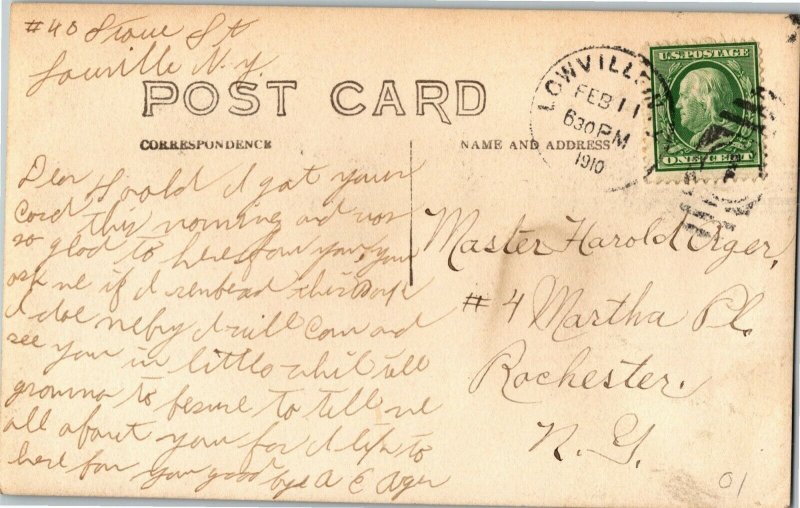 #40 Stowe St
Louville N.Y.
POST CARD
CORRESPONDENCE
NAME AND ADDRESS
U.S. POSTAGE
ONE CENT
LOWVILLE N.Y.
FEB 11
630 PM
1910
Dear Harold I got your
Card this morning and was
so glad to here from you, you
ask me if I
I doe I will Com and
see you in little whil tell
gromma to be sure to tell me
all about you for I like to
here from you good bye A E Ager
Master Harold Ager,
#4 Martha Pl.
Rochester.
N.Y.
01